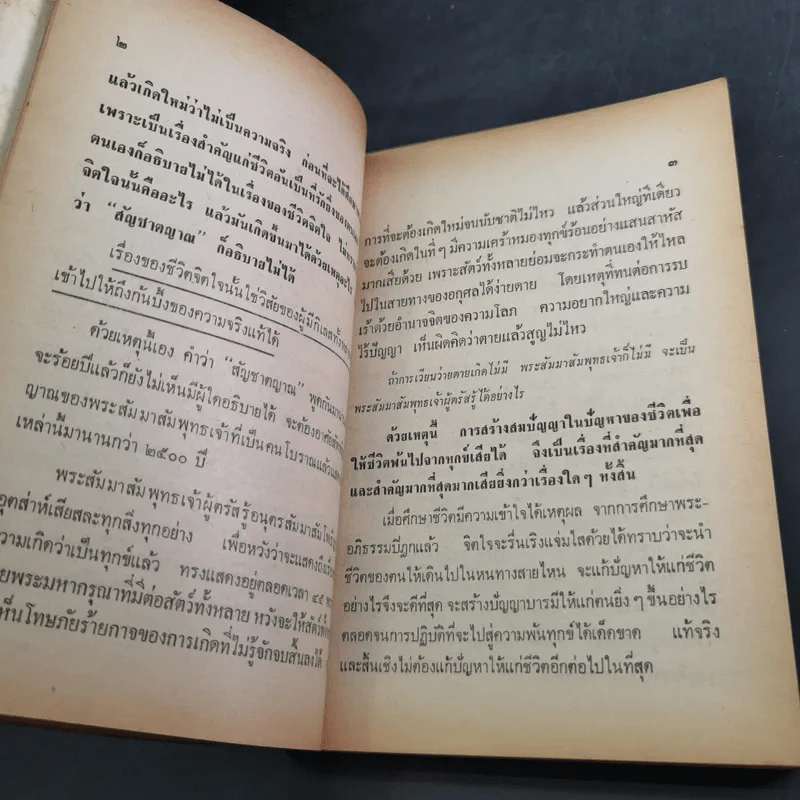 ๒
แล้วเกิดใหม่ว่าไม่เป็นความจริง ก่อนที่จะได้
เพราะเป็นเรื่องสำคัญแก่ชีวิตอันเป็นที่รักยิ่งของ
ตนเองก็อธิบายไม่ได้ในเรื่องของชีวิตจิตใจ
จิตใจนั้นคืออะไร แล้วมันเกิดขึ้นมาได้ด้วยเหตุอะไร
ว่า “สัญชาตญาณ” ก็อธิบายไม่ได้
เรื่องของชีวิตจิตใจนั้นใช่วิสัยของผู้มีกิเลส
เข้าไปให้ถึงก้นบึ้งของความจริงแท้ได้
ด้วยเหตุนี้เอง คำว่า “สัญชาตญาณ” พูดกันมา
จะร้อยปีแล้วก็ยังไม่เห็นมีผู้ใดอธิบายได้ จะต้องอาศัย
ญาณของพระสัมมาสัมพุทธเจ้าที่เป็นคนโบราณแล้ว
เหล่านี้มานานกว่า ๒๕๐๐ ปี
พระสัมมาสัมพุทธเจ้าผู้ตรัสรู้อนุตรสัมมาสัมโพธิ
อุตส่าห์เสียสละทุกสิ่งทุกอย่าง เพื่อหวังว่าจะแสดงถึง
ความเกิดว่าเป็นทุกข์แล้ว ทรงแสดงอยู่ตลอดเวลา ๔๕
ยพระมหากรุณาที่มีต่อสัตว์ทั้งหลาย หวังจะให้สัตว์
ห็นโทษภัยร้ายกาจของการเกิดที่ไม่รู้จักจบสิ้นลงได้
๓
การที่จะต้องเกิดใหม่จนนับชาติไม่ไหว แล้วส่วนใหญ่ทีเดียว
จะต้องเกิดในที่ๆ มีความเศร้าหมองทุกข์ร้อนอย่างแสนสาหัส
มากเสียด้วย เพราะสัตว์ทั้งหลายย่อมจะกระทำตนเองให้ไหล
ไปในสายทางของอกุศลได้ง่ายดาย โดยเหตุที่ทนต่อการรบ
เร้าด้วยอำนาจจิตของความโลภ ความอยากใหญ่และความ
ไร้ปัญญา เห็นผิดคิดว่าตายแล้วสูญไม่ไหว
ถ้าการเวียนว่ายตายเกิดไม่มี พระสัมมาสัมพุทธเจ้าก็ไม่มี จะเป็น
พระสัมมาสัมพุทธเจ้าผู้ตรัสรู้ได้อย่างไร
ด้วยเหตุนี้ การสร้างสมปัญญาในปัญหาของชีวิตเพื่อ
ให้ชีวิตพ้นไปจากทุกข์เสียได้ จึงเป็นเรื่องที่สำคัญมากที่สุด
และสำคัญมากที่สุดมากเสียยิ่งกว่าเรื่องใดๆ ทั้งสิ้น
เมื่อศึกษาชีวิตมีความเข้าใจได้เหตุผล จากการศึกษาพระ-
อภิธรรมปิฎกแล้ว จิตใจจะรื่นเริงแจ่มใสด้วยได้ทราบว่าจะนำ
ชีวิตของตนให้เดินไปในหนทางสายไหน จะแก้ปัญหาให้แก่ชีวิต
อย่างไรจึงจะดีที่สุด จะสร้างปัญญาบารมีให้แก่ตนยิ่งๆ ขึ้นอย่างไร
ตลอดจนการปฏิบัติที่จะไปสู่ความพ้นทุกข์ได้เด็ดขาด แท้จริง
และสิ้นเชิงไม่ต้องแก้ปัญหาให้แก่ชีวิตอีกต่อไปในที่สุด